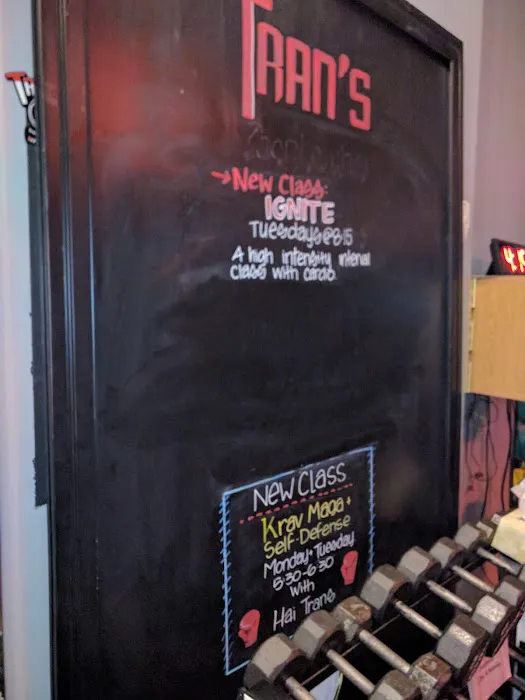 TRAN'S
→New Class:
IGNITE
Tuesdays @ 8:15
A high intensity interval
class with cardio.
New Class
Krav Maga +
Self-Defense
Monday + Tuesday
5:30-6:30
with
Hai Trang